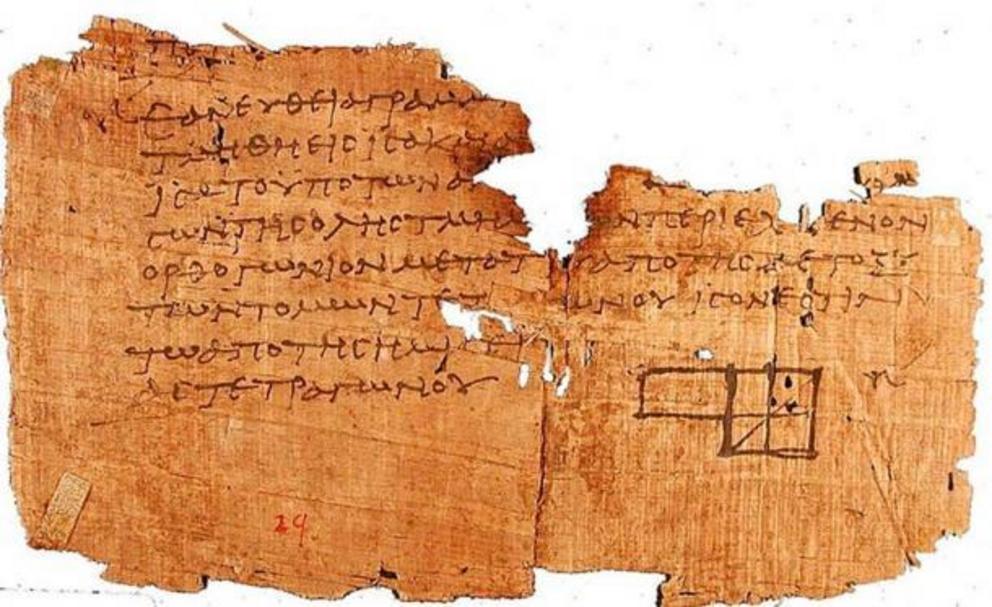 ΕΑΝ ΕΥΘΕΙΑ ΓΡΑΜ
ΤΜΗΘΗ ΕΙϹ ΙϹΑ Κ
ΙϹΑ ΤΟ ΥΠΟ ΤΩΝ ΑΝ
ϹΩΝ ΤΗϹ ΟΛΗϹ ΤΜΗ Ν ΠΕΡΙΕΧ ΕΝΟΝ
ΟΡΘΟΓΩΝΙΟΝ ΜΕΤΑ Τ ΑΠΟ ΤΗϹ ΜΕΤΟΞΥ
ΤΩΝ ΤΟΜΩΝ ΤΕΤ ΩΝΟΥ ΙϹΟΝ ΕϹΤΙΝ
ΤΩ ΑΠΟ ΤΗϹ ΗΜΙϹΕΙ
ΑϹ ΤΕΤΡΑΓΩΝΟΥ
29